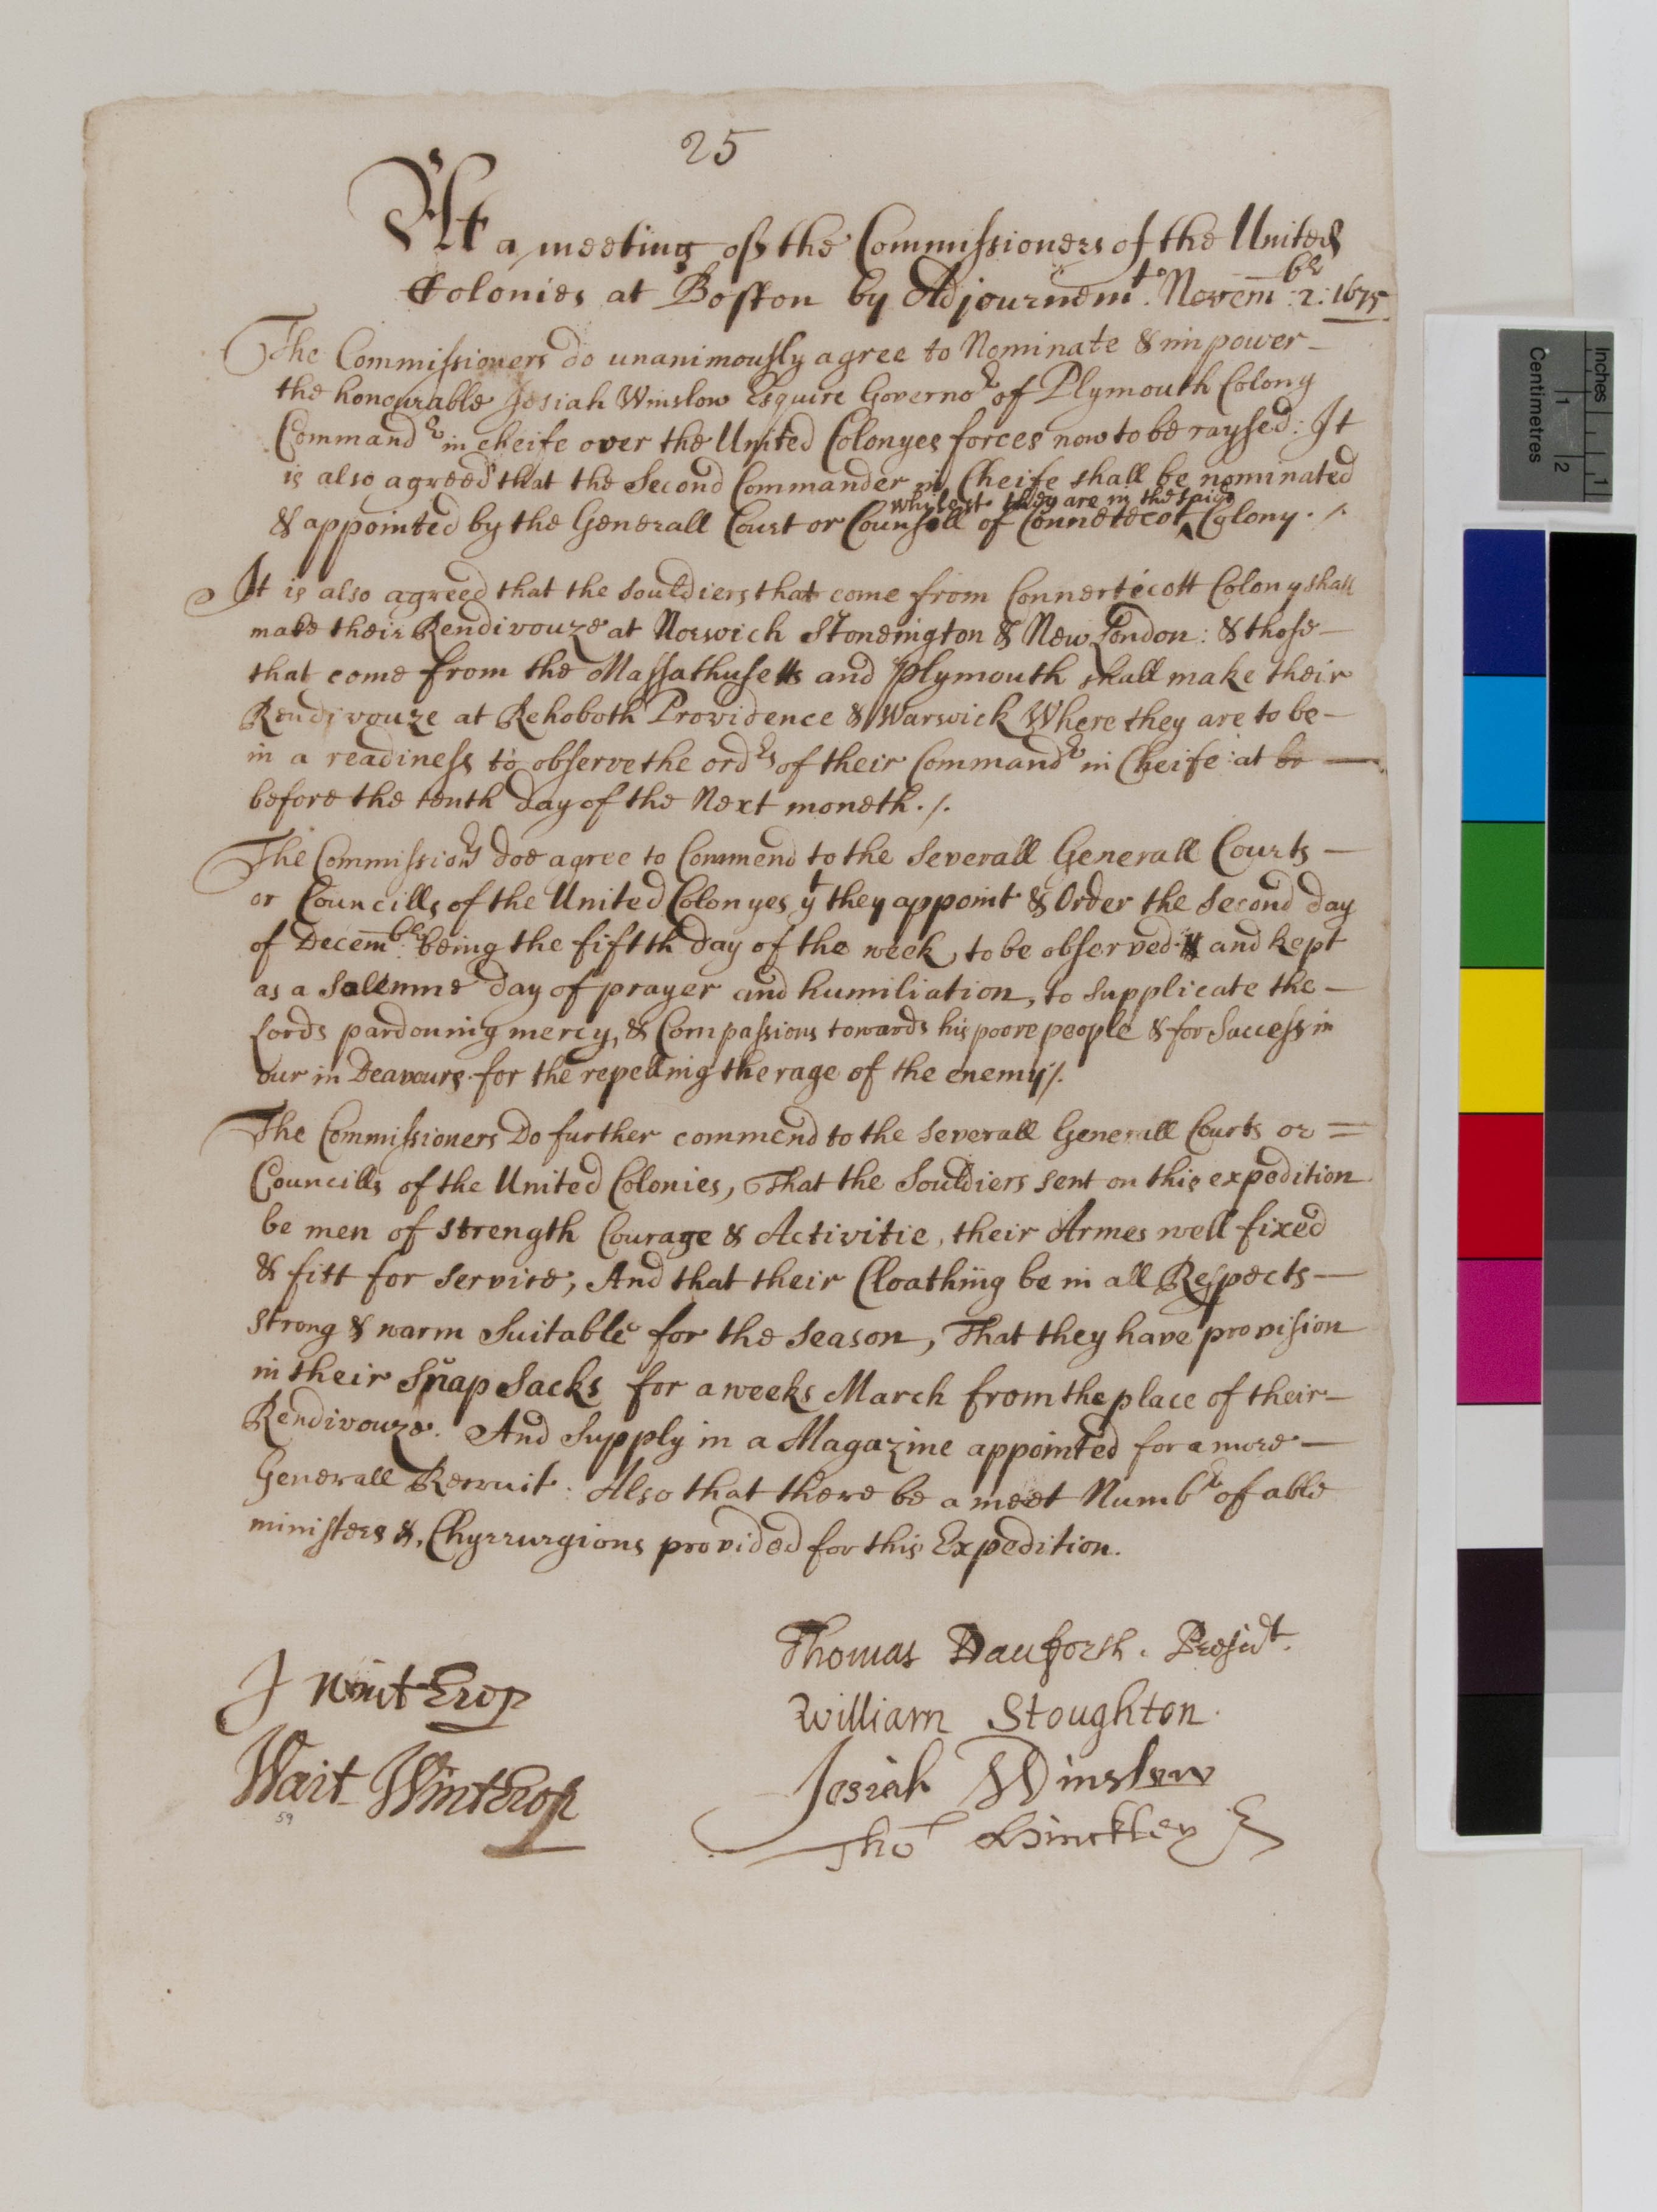 25
At a meeting of the Commissioners of the United
Colonies at Boston by Adjournemt. Novembr: 2: 1675.
The Commissioners do unanimously agree to Nominate & impower
the honourable Josiah Winslow Esquire Governor of Plymouth Colony
Commandr in cheife over the United Colonyes forces now to be raysed: It
is also agreed that the Second Commander in Cheife shall be nominated
whilest they are in the said
& appointed by the Generall Court or Counsell of Connetecot Colony.
It is also agreed that the souldiers that come from Connertecott Colony shall
make their Rendivouze at Norwich Stonington & New London: & those
that come from the Massathusetts and Plymouth shall make their
Rendivouze at Rehoboth Providence & Warwick Where they are to be
in a readiness to observe the ordrs of their Commandr in Cheife: at
before the tenth day of the Next moneth.
The Commissionrs doe agree to Commend to the Severall Generall Courts
or Councills of the United Colonyes yt they appoint & Order the Second day
of Decembr being the fiftth day of the week, to be observed and kept
as a Solemne day of prayer and humiliation, to supplicate the
Lords pardoning mercy, & Compassions towards his poore people & for Success in
our in Deavours for the repelling the rage of the enemy
The Commissioners Do further commend to the severall Generall Courts or
Councills of the United Colonies, That the Souldiers sent on this expedition
be men of strength Courage & Activitie, their Armes well fixed
& fitt for service, And that their Cloathing be in all Respects
strong & warm Suitable for the season, That they have provision
in their Snap Sacks for a weeks March from the place of their
Rendivouze. And Supply in a Magazine appointed for a more
Generall Recruit: Also that there be a meet Numbr of able
ministers &, Chyrrurgions provided for this Expedition.
Thomas Danforth. Presidt.
J Winthrop
William Stoughton.
Wait Winthrop
Josiah Winslow
Tho Hinckley
59
Inches
Centimetres
1
2
1